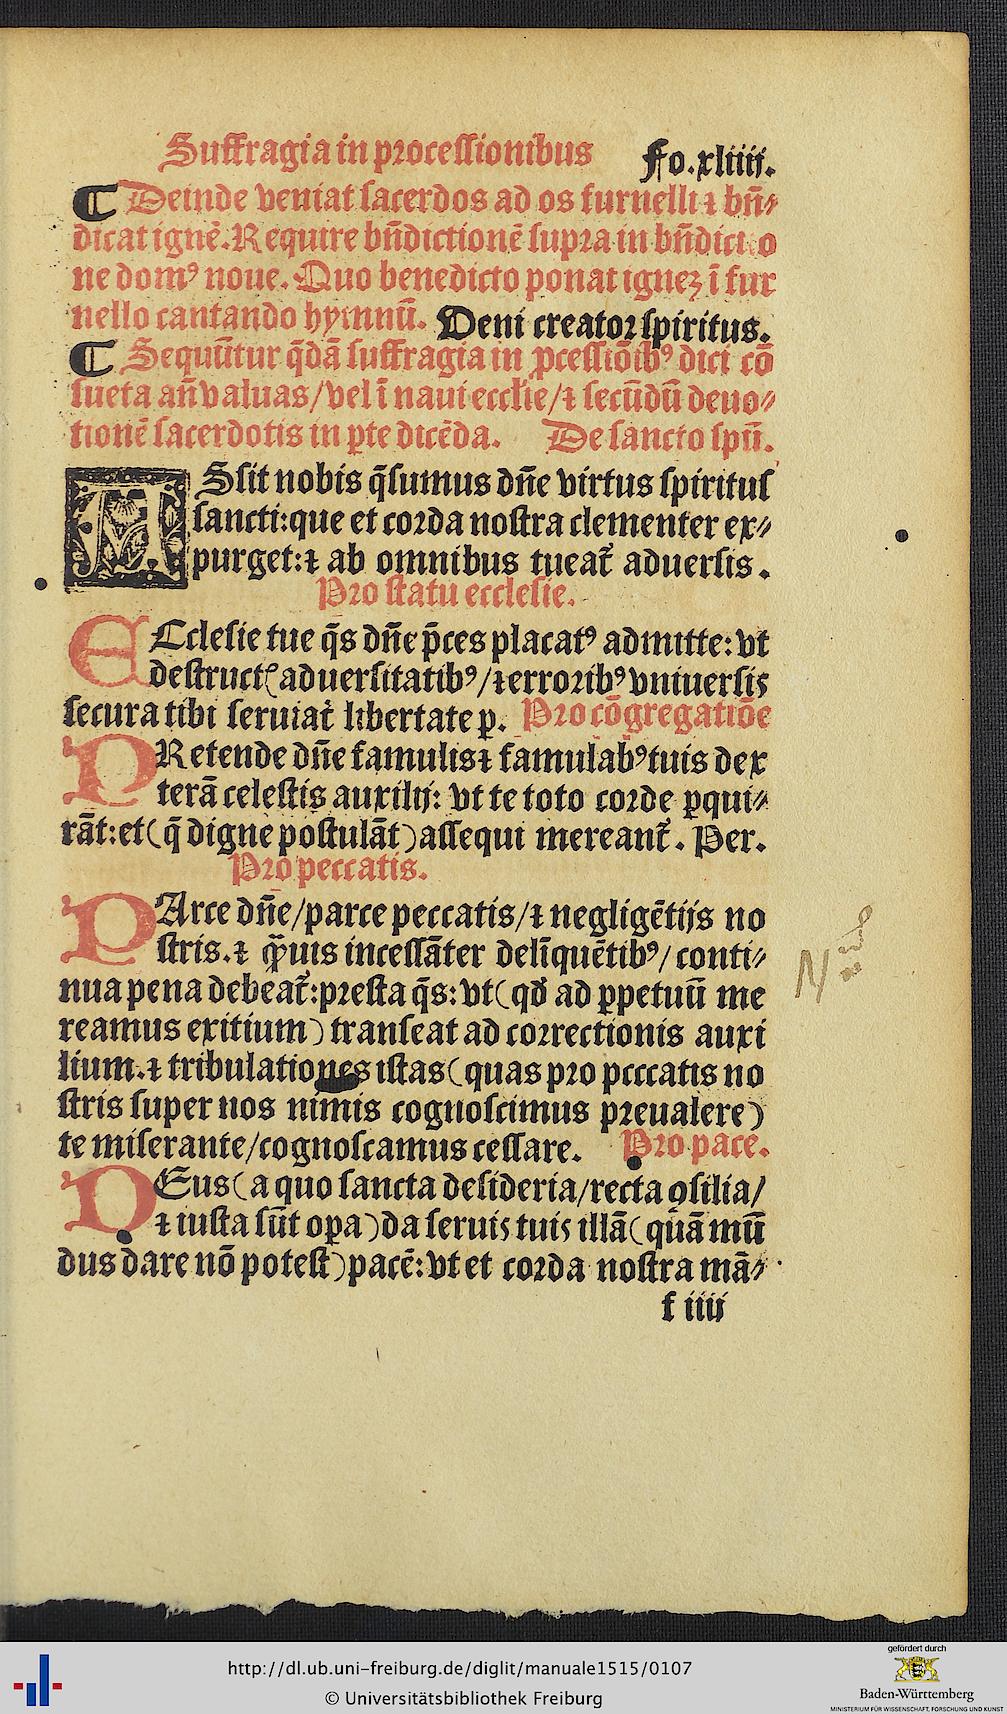 Suffragia in processionibus Fo.xliiij.
¶ Deinde veniat sacerdos ad os furnelli ⁊ bñ⸗
dicat ignē. Require bñdictionē supra in bñdictio
ne domꝰ noue. Quo benedicto ponat ignez ī fur
nello cantando hymnū. Veni creator spiritus.
¶ Sequūtur q̄dā suffragia in ꝓcessiōibꝰ dici cō
sueta añ valuas/vel ī naui ecclie/⁊ secūdū deuo⸗
tionē sacerdotis in ꝑte dicēda. De sancto spū.
ASsit nobis q̄sumus dñe virtus spiritus
sancti:que et corda nostra clementer ex⸗
purget:⁊ ab omnibus tueat᷑ aduersis.
Pro statu ecclesie.
ECclesie tue q̄s dñe p̄ces placatꝰ admitte: vt
destructꝭ aduersitatibꝰ/⁊ erroribꝰ vniuersis
secura tibi seruiat libertate ꝑ. Pro cōgregatiōe
PRetende dñe famulis ⁊ famulabꝰ tuis dex
terā celestis auxilij: vt te toto corde ꝑqui⸗
rāt: et (q̄ digne postulāt) assequi mereant᷑. Per.
Pro peccatis.
PArce dñe/parce peccatis/⁊ negligētijs no
stris. ⁊ q̄uis incessāter delīquētibꝰ/conti⸗
nua pena debeat᷑: presta q̄s: vt (qđ ad ꝑpetuū me
reamus exitium) transeat ad correctionis auxi
lium. ⁊ tribulationes istas (quas pro peccatis no
stris super nos nimis cognoscimus preualere)
te miserante/cognoscamus cessare. Pro pace.
DEus (a quo sancta desideria/recta ꝯsilia/
⁊ iusta sūt oꝑa) da seruis tuis illā (quā mū
dus dare nō potest) pacē: vt et corda nostra mā⸗
f iiij
http://dl.ub.uni-freiburg.de/diglit/manuale1515/0107
© Universitätsbibliothek Freiburg
gefördert durch
Baden-Württemberg
MINISTERIUM FÜR WISSENSCHAFT, FORSCHUNG UND KUNST